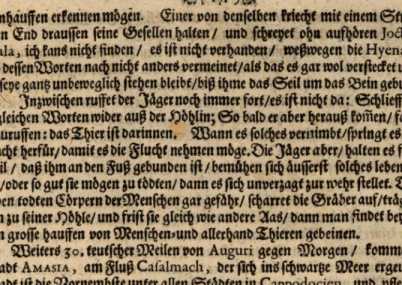 nhauffen erkennen mögen. Einer von denselben kriecht mit einem St
n End draussen seine Gesellen halten / und schreyet ohn auffhören Joc
ala, ich kans nicht finden / es ist nicht verhanden / weßwegen die Hyena
dessen Worten nach nicht anders vermeinet / als das es gar wol verstecket u
seye gantz unbeweglich stehen bleibt / biß ihme das Seil um das Bein gebu
Inzwischen ruffet der Jäger noch immer fort / es ist nicht da: Schlieff
gleichen Worten wider auß der Höhlin; So bald er aber herauß kom̃en / fa
uruffen: das Thier ist darinnen. Wann es solches vernimbt / springt es
acht herfür / damit es die Flucht nehmen möge. Die Jäger aber / halten es f
il / daß ihm an den Fuß gebunden ist / bemühen sich äusserst solches leben
/ oder so gut sie mögen zu tödten / dann es sich unverzagt zur wehr stellet. D
en todten Cörpern der Menschen gar gefähr / scharret die Gräber auf / träg
n zu seiner Höhle / und frist sie gleich wie andere Aas / dann man findet bey
n grosse hauffen von Menschen- und allerhand Thieren gebeinen.
Weiters 30. teutscher Meilen von Auguri gegen Morgen / komm
adt AMASIA, am Fluß Casalmach, der sich ins schwartze Meer ergeu
adt ist die Vornembste unter allen Städten in Cappodocien, und